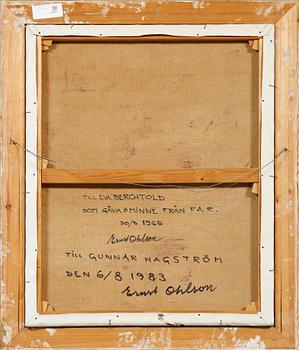 TILL EVA BERCHTOLD
SOM GÅVA O MINNE FRÅN FAR.
30/5 1965
Ernst Ohlson
TILL GUNNAR HAGSTRÖM
DEN 6/8 1983
Ernst Ohlson